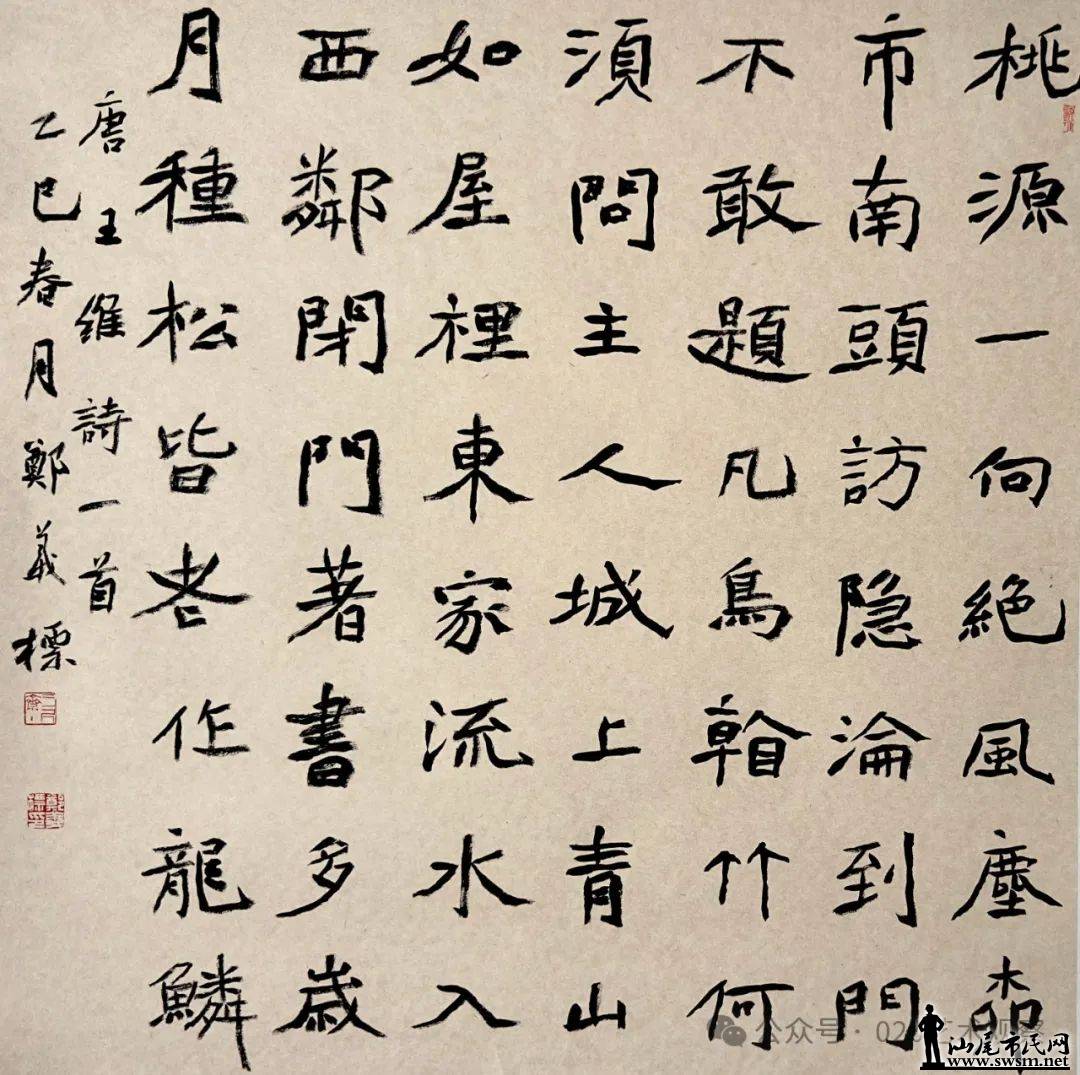 桃源一向絕風塵柳
市南頭訪隐淪到門
不敢題凡鳥看竹何
須問主人城上青山
如屋裡東家流水入
西鄰閉門著書多歲
月種松皆老作龍鱗
唐王維詩一首
乙巳春月鄭義標
公众号
汕尾市民网
www.swsm.net